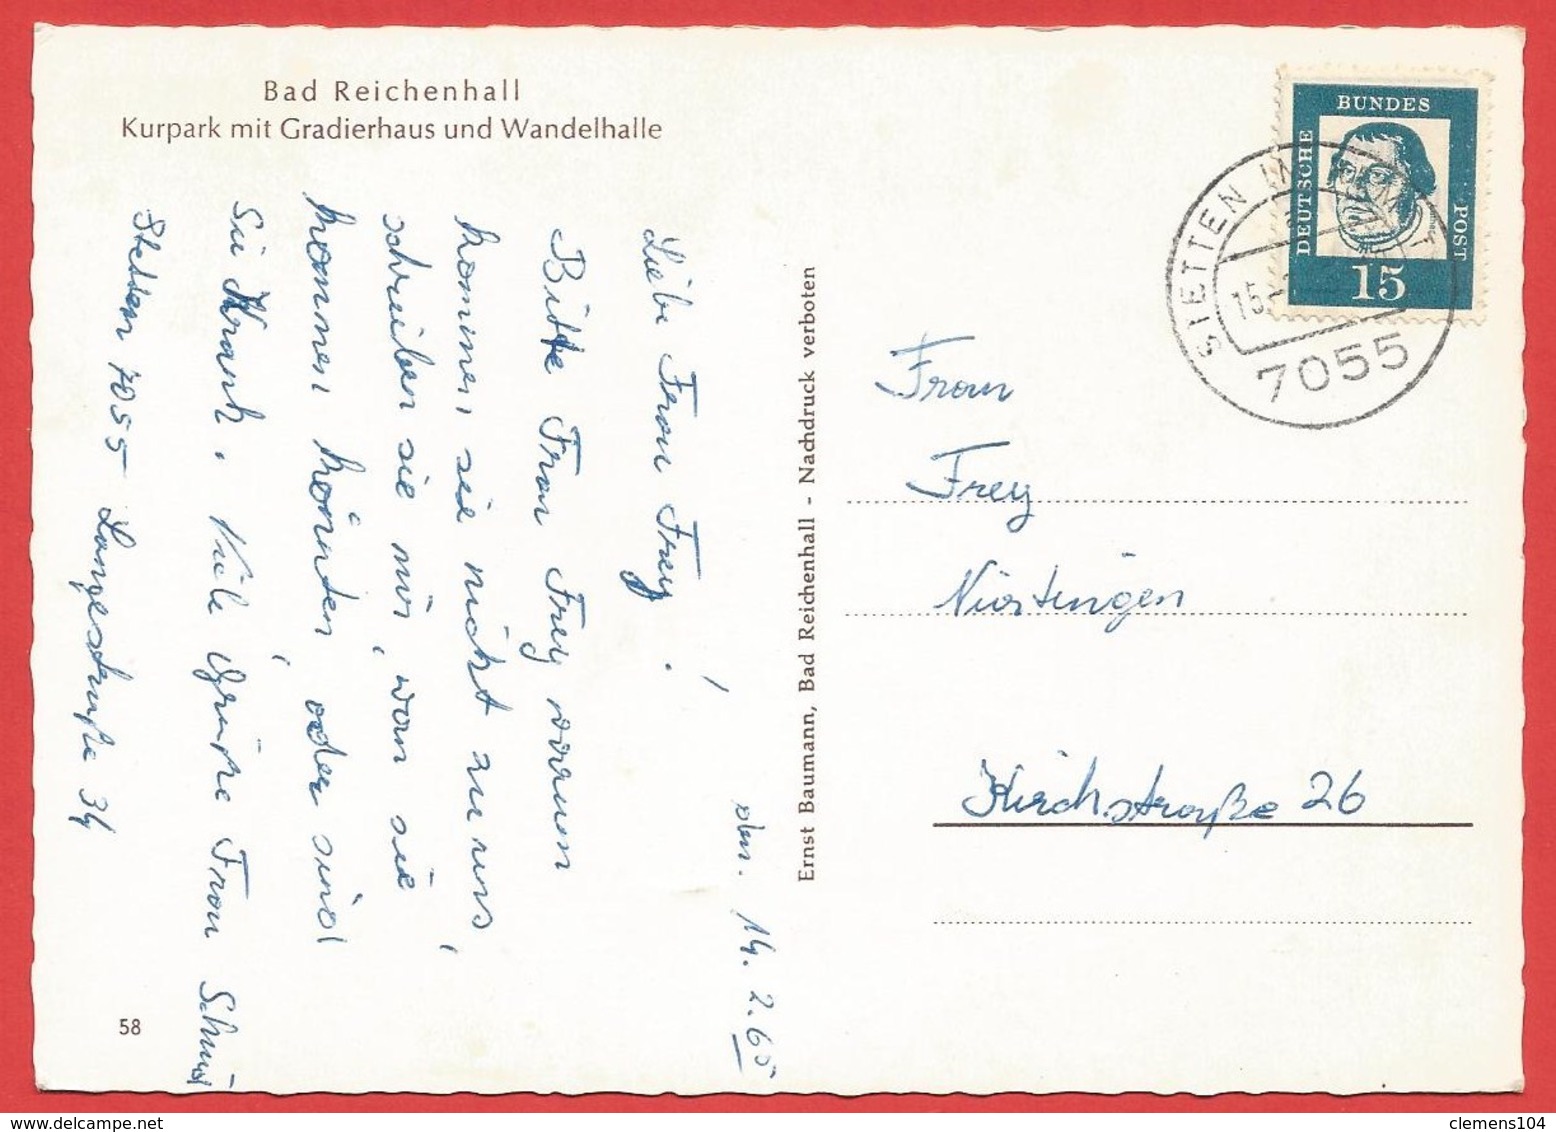 Bad Reichenhall
Kurpark mit Gradierhaus und Wandelhalle
den. 14. 2. 65
Liebe Frau Frey!
Bitte Frau Frey warum
kommen sie nicht zu uns,
schreiben sie mir, wan sie
kommen könnten, oder sind
Sie Krank. Viele Grüße Frau Schmid
Stetten 7055 Langestraße 34
58
Ernst Baumann, Bad Reichenhall - Nachdruck verboten
DEUTSCHE BUNDES POST
15
STETTEN IM
15.
7055
Frau
Frey
Nürtingen
Kirchstraße 26
clemens104